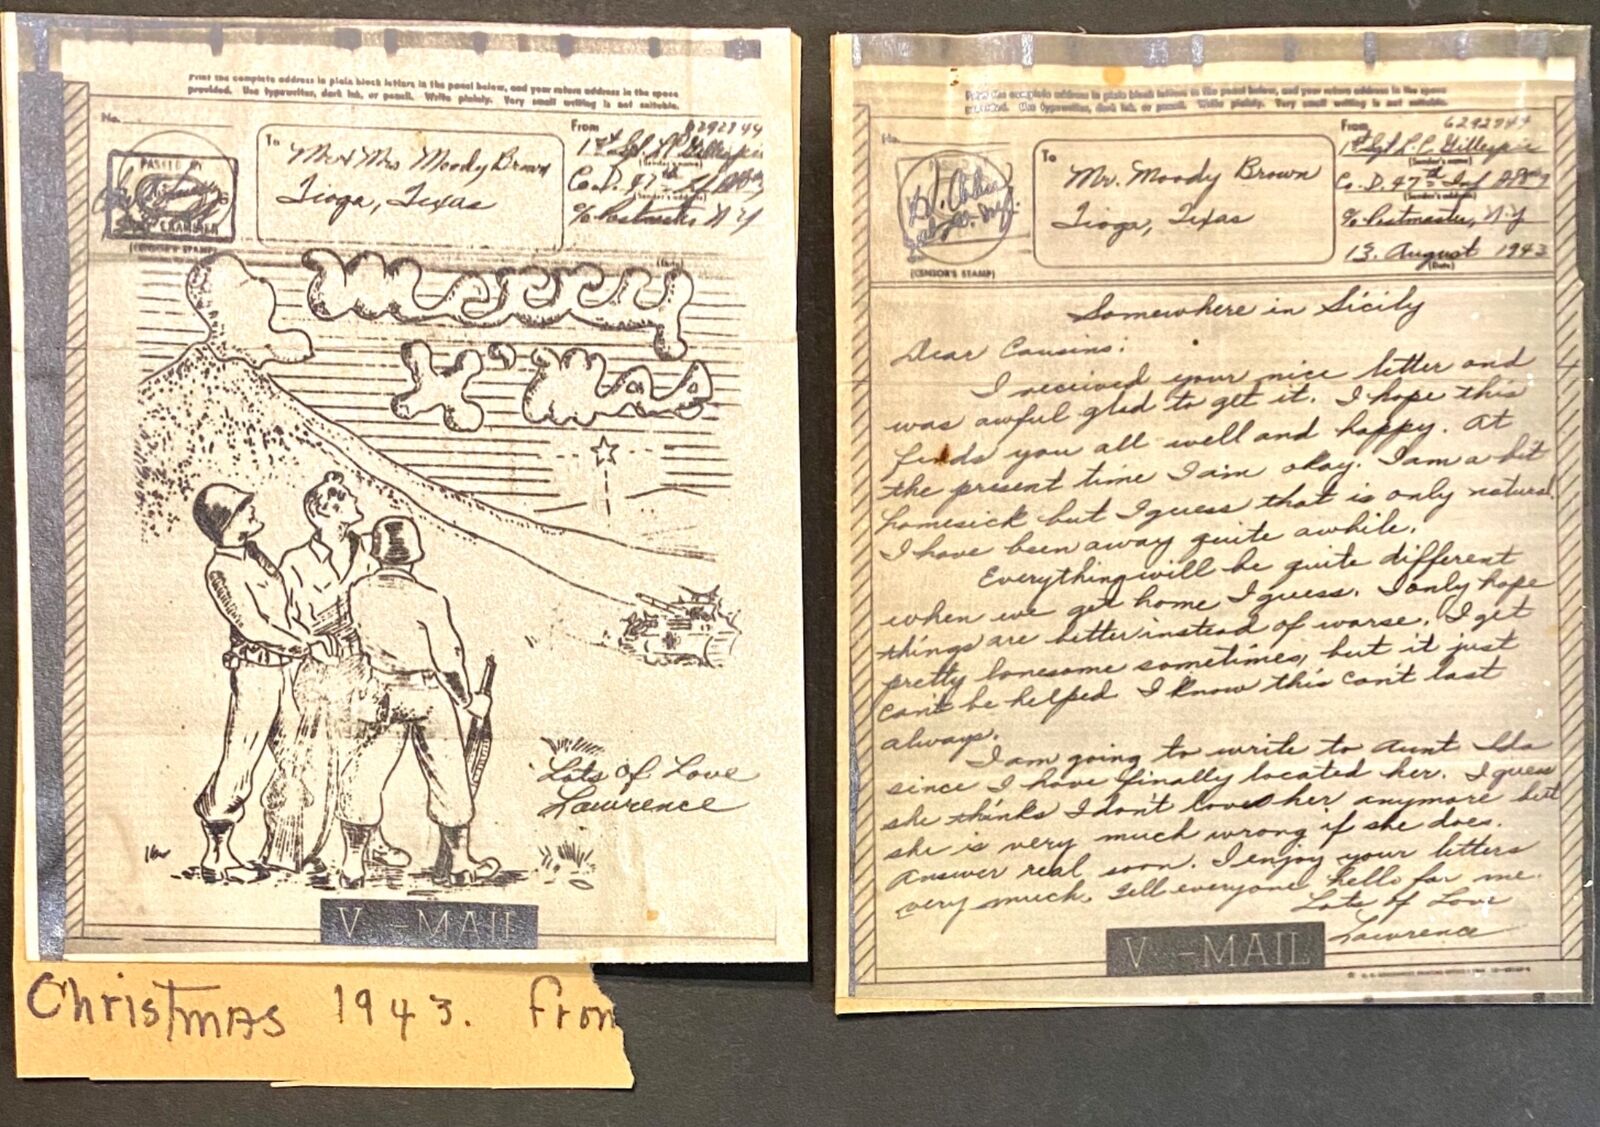 Print the complete address in plain block letters in the panel below, and your return address in the space
provided. Use typewriter, dark ink, or pencil. Write plainly. Very small writing is not suitable.
No.
PASSED BY
(CENSOR'S STAMP)
To
Mr & Mrs Moody Brown
Tioga, Texas
From
6292744
1st Sgt L P Gillespie
(Sender's name)
Co. D. 47th Inf
(Sender's address)
c/o Postmaster N Y
(Date)
MERRY
X'MAS
Lots of Love
Lawrence
V - MAIL
Christmas 1943. From
Print the complete address in plain block letters in the panel below, and your return address in the space
provided. Use typewriter, dark ink, or pencil. Write plainly. Very small writing is not suitable.
No.
(CENSOR'S STAMP)
To
Mr. Moody Brown
Tioga, Texas
From
6292744
1st Sgt L. P. Gillespie
(Sender's name)
Co. D. 47th Inf
(Sender's address)
c/o Postmaster, N.Y
13. August 1943
(Date)
Somewhere in Sicily
Dear Cousins:
I received your nice letter and
was awful glad to get it. I hope this
finds you all well and happy. At
the present time I am okay. I am a bit
homesick but I guess that is only natural.
I have been away quite awhile.
Everything will be quite different
when we get home I guess. I only hope
things are better instead of worse. I get
pretty lonesome sometimes, but it just
can't be helped. I know this can't last
always.
I am going to write to Aunt Ida
since I have finally located her. I guess
she thinks I don't love her anymore but
she is very much wrong if she does.
Answer real soon. I enjoy your letters
very much. Tell everyone hello for me.
Lots of Love
Lawrence
V - MAIL